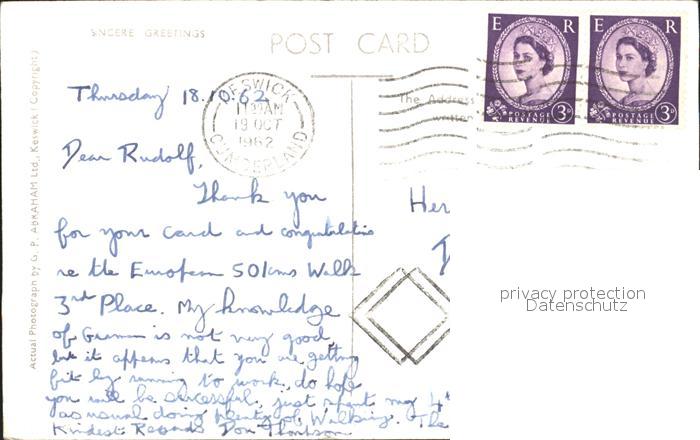 SINCERE GREETINGS
POST CARD
E R
POSTAGE REVENUE 3D
E R
POSTAGE REVENUE 3D
KESWICK
AM
19 OCT
1962
CUMBERLAND
The Address
written
Actual Photograph by G. P. ABRAHAM Ltd., Keswick (Copyright)
Thursday 18.10.62
Dear Rudolf,
Thank you
for your card and congratulations
re the European 50 kms Walk
3rd Place. My knowledge
of German is not very good,
but it appears that you are getting
fit by running to work, do hope
you will be successful, just spent my 4th
as usual doing plenty of Walking. The
Kindest Regards Don Thompson
Her
privacy protection
Datenschutz